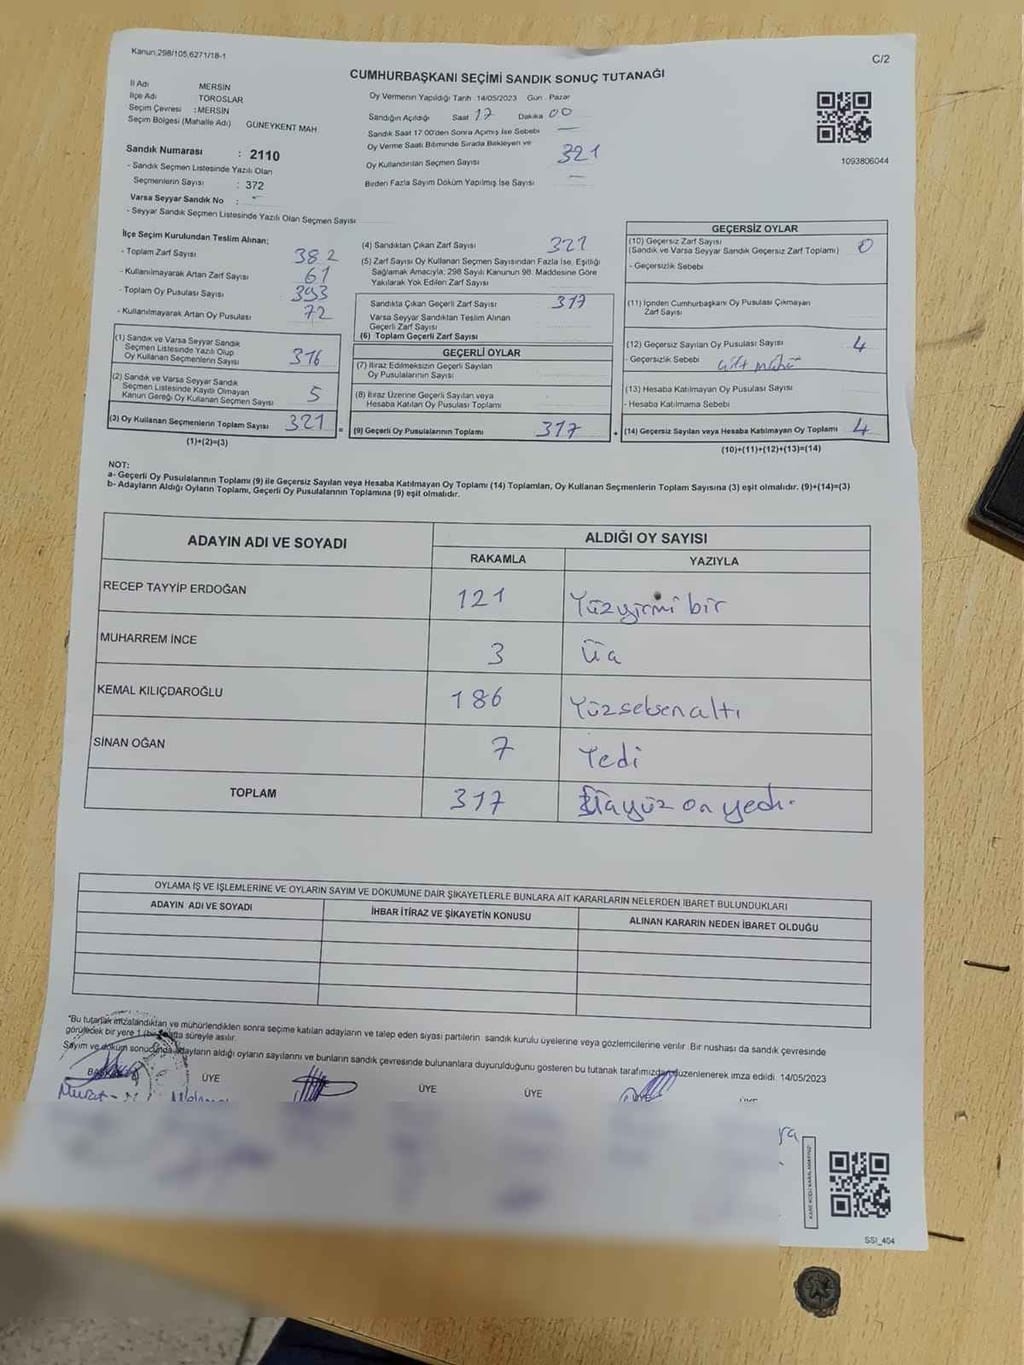 Kanun 298/105,6271/18-1
C/2
CUMHURBAŞKANI SEÇİMİ SANDIK SONUÇ TUTANAĞI
İl Adı MERSİN
İlçe Adı TOROSLAR
Seçim Çevresi : MERSİN
Seçim Bölgesi (Mahalle Adı) GÜNEYKENT MAH
Sandık Numarası : 2110
- Sandık Seçmen Listesinde Yazılı Olan
Seçmenlerin Sayısı : 372
Varsa Seyyar Sandık No : -
- Seyyar Sandık Seçmen Listesinde Yazılı Olan Seçmen Sayısı
Oy Vermenin Yapıldığı Tarih 14/05/2023 Gün : Pazar
Sandığın Açıldığı Saat 17 Dakika 00
Sandık Saat 17 00'den Sonra Açılmış İse Sebebi —
Oy Verme Saati Bitiminde Sırada Bekleyen ve
Oy Kullandırılan Seçmen Sayısı 321
Birden Fazla Sayım Döküm Yapılmış İse Sayısı —
1093806044
İlçe Seçim Kurulundan Teslim Alınan;
- Toplam Zarf Sayısı 382
- Kullanılmayarak Artan Zarf Sayısı 61
- Toplam Oy Pusulası Sayısı 393
- Kullanılmayarak Artan Oy Pusulası 72
(1) Sandık ve Varsa Seyyar Sandık
Seçmen Listesinde Yazılı Olup
Oy Kullanan Seçmenlerin Sayısı 316
(2) Sandık ve Varsa Seyyar Sandık
Seçmen Listesinde Kayıtlı Olmayan
Kanun Gereği Oy Kullanan Seçmen Sayısı 5
(3) Oy Kullanan Seçmenlerin Toplam Sayısı 321
(1)+(2)=(3)
(4) Sandıktan Çıkan Zarf Sayısı 321
(5) Zarf Sayısı Oy Kullanan Seçmen Sayısından Fazla İse, Eşitliği
Sağlamak Amacıyla; 298 Sayılı Kanunun 98. Maddesine Göre
Yakılarak Yok Edilen Zarf Sayısı
Sandıkta Çıkan Geçerli Zarf Sayısı 317
Varsa Seyyar Sandıktan Teslim Alınan
Geçerli Zarf Sayısı
(6) Toplam Geçerli Zarf Sayısı
GEÇERLİ OYLAR
(7) İtiraz Edilmeksizin Geçerli Sayılan
Oy Pusulalarının Sayısı
(8) İtiraz Üzerine Geçerli Sayılan veya
Hesaba Katılan Oy Pusulası Toplamı
= (9) Geçerli Oy Pusulalarının Toplamı 317
GEÇERSİZ OYLAR
(10) Geçersiz Zarf Sayısı 0
(Sandık ve Varsa Seyyar Sandık Geçersiz Zarf Toplamı)
- Geçersizlik Sebebi
(11) İçinden Cumhurbaşkanı Oy Pusulası Çıkmayan
Zarf Sayısı
(12) Geçersiz Sayılan Oy Pusulası Sayısı 4
- Geçersizlik Sebebi çift mühür
(13) Hesaba Katılmayan Oy Pusulası Sayısı
- Hesaba Katılmama Sebebi
+ (14) Geçersiz Sayılan veya Hesaba Katılmayan Oy Toplamı 4
(10)+(11)+(12)+(13)=(14)
NOT:
a- Geçerli Oy Pusulalarının Toplamı (9) ile Geçersiz Sayılan veya Hesaba Katılmayan Oy Toplamı (14) Toplamları, Oy Kullanan Seçmenlerin Toplam Sayısına (3) eşit olmalıdır. (9)+(14)=(3)
b- Adayların Aldığı Oyların Toplamı, Geçerli Oy Pusulalarının Toplamına (9) eşit olmalıdır.
ADAYIN ADI VE SOYADI
ALDIĞI OY SAYISI
RAKAMLA YAZIYLA
RECEP TAYYİP ERDOĞAN 121 Yüzyirmi bir
MUHARREM İNCE 3 Üç
KEMAL KILIÇDAROĞLU 186 Yüzseksenaltı
SİNAN OĞAN 7 Yedi
TOPLAM 317 Üçyüz on yedi.
OYLAMA İŞ VE İŞLEMLERİNE VE OYLARIN SAYIM VE DÖKÜMÜNE DAİR ŞİKAYETLERLE BUNLARA AİT KARARLARIN NELERDEN İBARET BULUNDUKLARI
ADAYIN ADI VE SOYADI İHBAR İTİRAZ VE ŞİKAYETİN KONUSU ALINAN KARARIN NEDEN İBARET OLDUĞU
"Bu tutanak imzalandıktan ve mühürlendikten sonra seçime katılan adayların ve talep eden siyasi partilerin sandık kurulu üyelerine veya gözlemcilerine verilir. Bir nüshası da sandık çevresinde
görülecek bir yere 1 (bir) hafta süreyle asılır.
Sayım ve döküm sonucunda adayların aldığı oyların sayılarını ve bunların sandık çevresinde bulunanlara duyurulduğunu gösteren bu tutanak tarafımızdan düzenlenerek imza edildi. 14/05/2023
BAŞKAN ÜYE ÜYE ÜYE
Murat
SSI_404